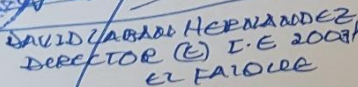 DAVID ZABALA HERNANDEZ
DIRECTOR (E) I.E 2009
EL FAROLDE